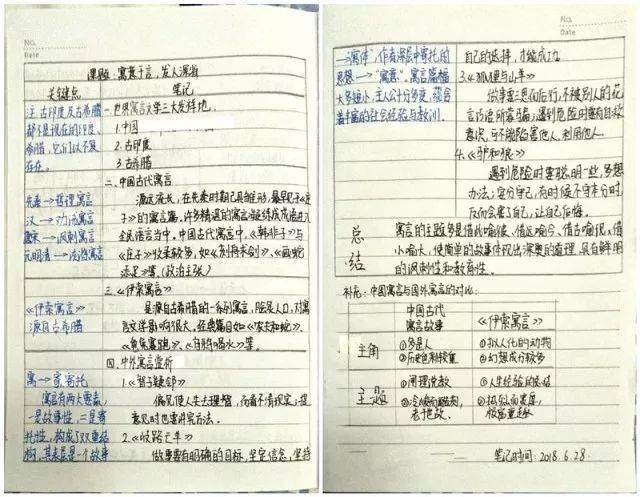 No.
Date
课题：寓意于言，发人深省
关键点
笔记
注：古印度及古希腊
都不是现在的印度、
希腊，它们以不复
存在。
先秦→哲理寓言
汉→劝诫寓言
唐宋→讽刺寓言
元明清→诙谐寓言
《伊索寓言》
源自古希腊
寓→寄托
寓言有两大要素，
一是故事性，二是寄
托性，构成了双重结
构，其表层是一个故事
一.世界寓言文学三大发祥地.
1.中国
2.古印度
3.古希腊
二.中国古代寓言
源远流长，在先秦时期已具雏形，最早见于《庄
子》的寓言篇，许多精选的寓言凝练成成语进入
全民语言当中。中国古代寓言中，《韩非子》与
《庄子》收录颇多，如《刻舟求剑》、《画蛇
添足》等.(政治主张)
三.《伊索寓言》
是源自古希腊的一系列寓言，脍炙人口，对寓
言文学影响很大，经典篇目如《农夫和蛇》、
《龟兔赛跑》、《乌鸦喝水》等。
四.中外寓言赏析
1.《智子疑邻》
偏见使人失去理智，而看不清现实；提
意见时也要讲究方法。
2.《歧路亡羊》
做事要有明确的目标，坚定信念，坚持
No.
Date
→"寓体"，作者深层中寄托的
思想→"寓意"。寓言篇幅
大多短小，主人公十分多变，蕴含
着丰富的社会经验与教训。
自己的选择，才能成功。
3.《狐狸与山羊》
做事要三思而后行，不被别人的花
言巧语所蒙骗；遇到危险时要有自救
意识，可不能陷害他人，利用他人。
4.《驴和狼》
遇到危险时要聪明一些，多想
办法；安分守己，有时候不守本分时，
反而会害了自己，让自己后悔。
总
结
寓言的主题多是借此喻彼、借远喻今、借古喻现、借
小喻大，使简单的故事体现出深奥的道理，具有鲜明
的讽刺性和教育性。
补充：中国寓言与国外寓言的对比：
中国古代
寓言故事
《伊索寓言》
主角
①多是人
②历史色彩较重
①拟人化的动物
②幻想成分较多
主题
①用理说教
老于世故。
①人生经验的总结
笔记时间：2018.6.28.